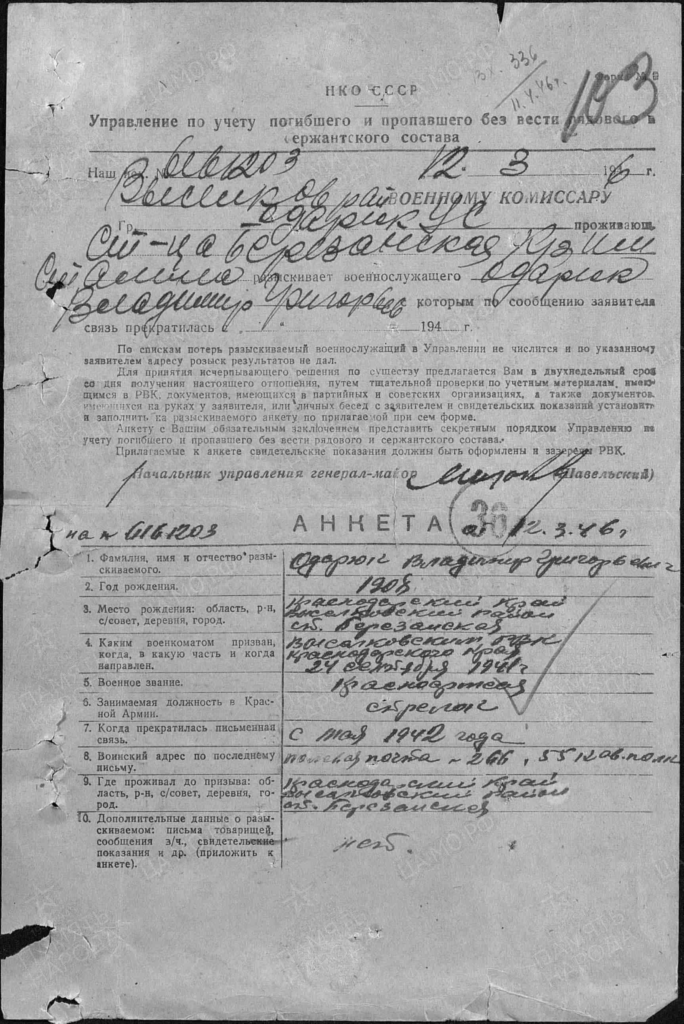 336
11.4.46г.
Форма № 9
103
НКО СССР
Управление по учету погибшего и пропавшего без вести рядового и
сержантского состава
Наш исх. № 6161203 12. 3 1946 г.
райВОЕННОМУ КОМИССАРУ
Гр. Одарюк УС проживающ.
Ст-ца Березанская К-з им
Сталина разыскивает военнослужащего Одарюк
Владимир Григорьев которым по сообщению заявителя
связь прекратилась " " = 194 г.
По спискам потерь разыскиваемый военнослужащий в Управлении не числится и по указанному
заявителем адресу розыск результатов не дал.
Для принятия исчерпывающего решения по существу предлагается Вам в двухнедельный срок
со дня получения настоящего отношения, путем тщательной проверки по учетным материалам, имею-
щимся в РВК, документов, имеющихся в партийных и советских организациях, а также документов,
имеющихся на руках у заявителя, или личных бесед с заявителем и свидетельских показаний установить
и заполнить на разыскиваемого анкету по прилагаемой при сем форме.
Анкету с Вашим обязательным заключением представить секретным порядком Управлению по
учету погибшего и пропавшего без вести рядового и сержантского состава.
Прилагаемые к анкете свидетельские показания должны быть оформлены и заверены РВК.
Начальник управления генерал-майор (Шавельский)
36
на № 6161203 АНКЕТА от 12.3.46г
1. Фамилия, имя и отчество разы-
скиваемого. Одарюк Владимир Григорьевич
2. Год рождения. 1908
3. Место рождения: область, р-н,
с/совет, деревня, город. Краснодарский Край
Выселковский район
ст. Березанская
4. Каким военкоматом призван,
когда, в какую часть и когда
направлен. Выселковским РВК
Краснодарского Края
24 сентября 1941г
5. Военное звание. Красноармеец
6. Занимаемая должность в Крас-
ной Армии. стрелок
7. Когда прекратилась письменная
связь. с мая 1942 года
8. Воинский адрес по последнему
письму. полевая почта - 266, 55 кав. полк
9. Где проживал до призыва: об-
ласть, р-н, с/совет, деревня, го-
род. Краснодарский Край
Выселковский район
ст. Березанская
10. Дополнительные данные о разы-
скиваемом: письма товарищей,
сообщения з/ч., свидетельские
показания и др. (приложить к
анкете). нет.